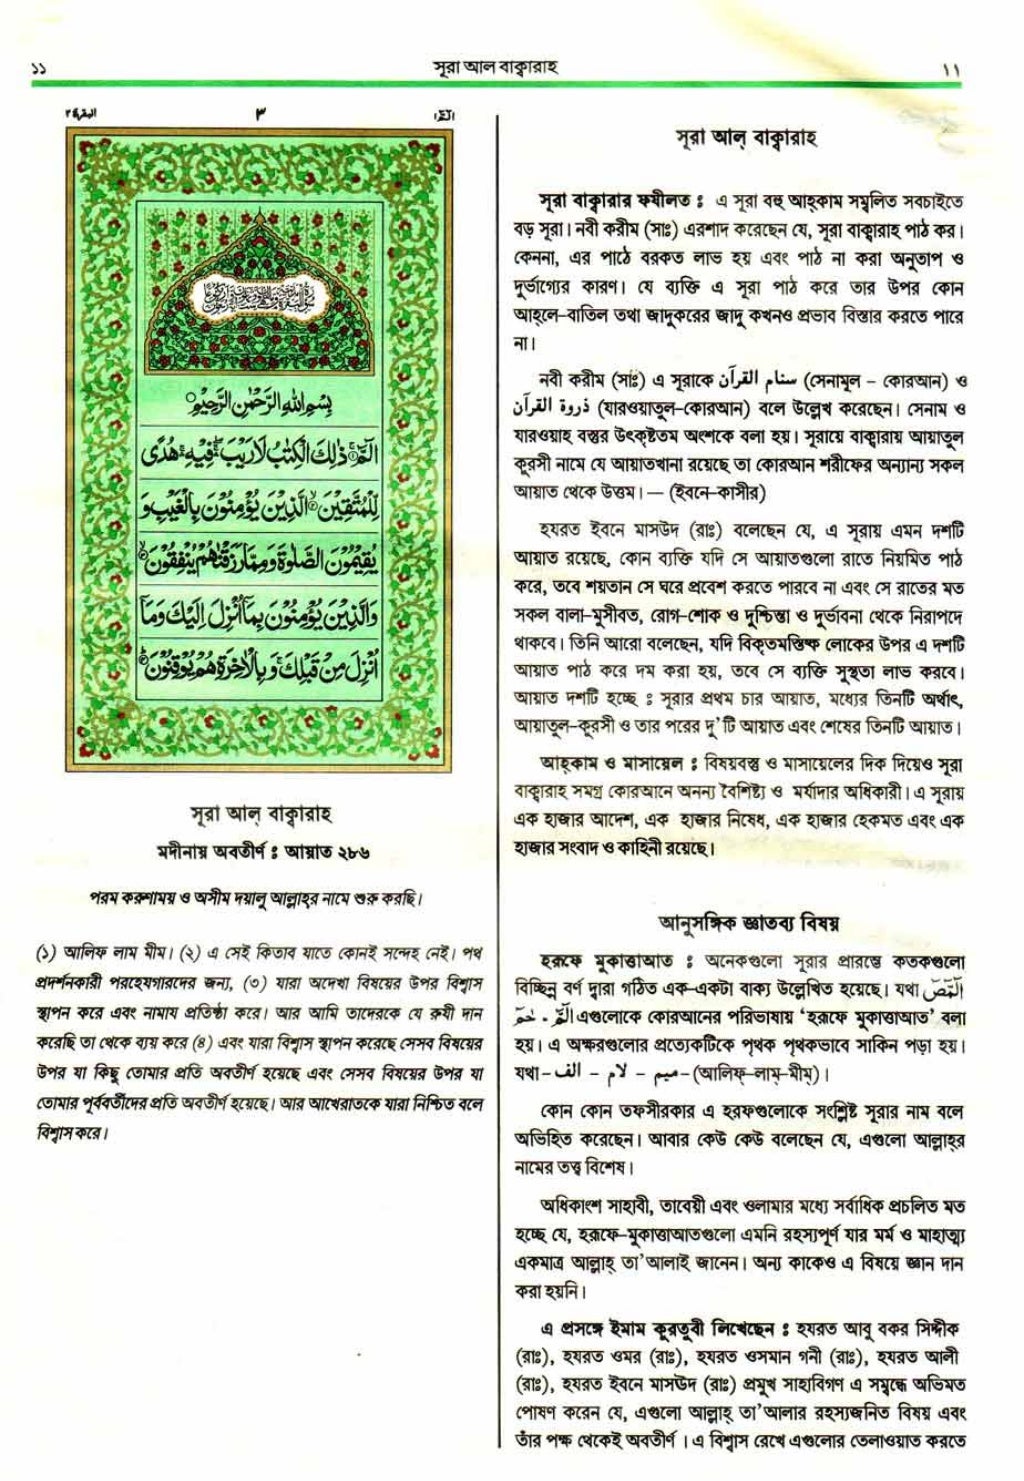 ১১
সূরা আল বাক্বারাহ
١١
البقرة ٢
٣
الٓمّٓ ١
بِسْمِ اللهِ الرَّحْمٰنِ الرَّحِيْمِ
الٓمّٓ ذٰلِكَ الْكِتٰبُ لَا رَيْبَ فِيْهِ هُدًى
لِّلْمُتَّقِيْنَ الَّذِيْنَ يُؤْمِنُوْنَ بِالْغَيْبِ وَ
يُقِيْمُوْنَ الصَّلٰوةَ وَمِمَّا رَزَقْنٰهُمْ يُنْفِقُوْنَ
وَالَّذِيْنَ يُؤْمِنُوْنَ بِمَآ اُنْزِلَ اِلَيْكَ وَمَآ
اُنْزِلَ مِنْ قَبْلِكَ وَبِالْاٰخِرَةِ هُمْ يُوْقِنُوْنَ
সূরা আল্ বাক্বারাহ
মদীনায় অবতীর্ণ ঃ আয়াত ২৮৬
পরম করুণাময় ও অসীম দয়ালু আল্লাহ্‌র নামে শুরু করছি।
(১) আলিফ লাম মীম। (২) এ সেই কিতাব যাতে কোনই সন্দেহ নেই। পথ
প্রদর্শনকারী পরহেযগারদের জন্য, (৩) যারা অদেখা বিষয়ের উপর বিশ্বাস
স্থাপন করে এবং নামায প্রতিষ্ঠা করে। আর আমি তাদেরকে যে রুযী দান
করেছি তা থেকে ব্যয় করে (৪) এবং যারা বিশ্বাস স্থাপন করেছে সেসব বিষয়ের
উপর যা কিছু তোমার প্রতি অবতীর্ণ হয়েছে এবং সেসব বিষয়ের উপর যা
তোমার পূর্ববর্তীদের প্রতি অবতীর্ণ হয়েছে। আর আখেরাতকে যারা নিশ্চিত বলে
বিশ্বাস করে।
সূরা আল্ বাক্বারাহ
সূরা বাক্বারার ফযীলত ঃ এ সূরা বহু আহ্‌কাম সম্বলিত সবচাইতে
বড় সূরা। নবী করীম (সাঃ) এরশাদ করেছেন যে, সূরা বাক্বারাহ পাঠ কর।
কেননা, এর পাঠে বরকত লাভ হয় এবং পাঠ না করা অনুতাপ ও
দুর্ভাগ্যের কারণ। যে ব্যক্তি এ সূরা পাঠ করে তার উপর কোন
আহ্‌লে-বাতিল তথা জাদুকরের জাদু কখনও প্রভাব বিস্তার করতে পারে
না।
নবী করীম (সাঃ) এ সূরাকে سنام القرآن (সেনামুল - কোরআন) ও
ذروة القرآن (যারওয়াতুল-কোরআন) বলে উল্লেখ করেছেন। সেনাম ও
যারওয়াহ বস্তুর উৎকৃষ্টতম অংশকে বলা হয়। সূরায়ে বাক্বারায় আয়াতুল
কুরসী নামে যে আয়াতখানা রয়েছে তা কোরআন শরীফের অন্যান্য সকল
আয়াত থেকে উত্তম। — (ইবনে-কাসীর)
হযরত ইবনে মাসউদ (রাঃ) বলেছেন যে, এ সূরায় এমন দশটি
আয়াত রয়েছে, কোন ব্যক্তি যদি সে আয়াতগুলো রাতে নিয়মিত পাঠ
করে, তবে শয়তান সে ঘরে প্রবেশ করতে পারবে না এবং সে রাতের মত
সকল বালা-মুসীবত, রোগ-শোক ও দুশ্চিন্তা ও দুর্ভাবনা থেকে নিরাপদে
থাকবে। তিনি আরো বলেছেন, যদি বিকৃতমস্তিষ্ক লোকের উপর এ দশটি
আয়াত পাঠ করে দম করা হয়, তবে সে ব্যক্তি সুস্থতা লাভ করবে।
আয়াত দশটি হচ্ছে ঃ সূরার প্রথম চার আয়াত, মধ্যের তিনটি অর্থাৎ,
আয়াতুল-কুরসী ও তার পরের দু'টি আয়াত এবং শেষের তিনটি আয়াত।
আহ্‌কাম ও মাসায়েল ঃ বিষয়বস্তু ও মাসায়েলের দিক দিয়েও সূরা
বাক্বারাহ সমগ্র কোরআনে অনন্য বৈশিষ্ট্য ও মর্যাদার অধিকারী। এ সূরায়
এক হাজার আদেশ, এক হাজার নিষেধ, এক হাজার হেকমত এবং এক
হাজার সংবাদ ও কাহিনী রয়েছে।
আনুসঙ্গিক জ্ঞাতব্য বিষয়
হরূফে মুকাত্তাআত ঃ অনেকগুলো সূরার প্রারম্ভে কতকগুলো
বিচ্ছিন্ন বর্ণ দ্বারা গঠিত এক-একটা বাক্য উল্লেখিত হয়েছে। যথা الٓمّٓصٓ
الٓمّٓ . حٰمٓ এগুলোকে কোরআনের পরিভাষায় 'হরূফে মুকাত্তাআত' বলা
হয়। এ অক্ষরগুলোর প্রত্যেকটিকে পৃথক পৃথকভাবে সাকিন পড়া হয়।
যথা- الف - لام - ميم -(আলিফ্-লাম্-মীম্)।
কোন কোন তফসীরকার এ হরফগুলোকে সংশ্লিষ্ট সূরার নাম বলে
অভিহিত করেছেন। আবার কেউ কেউ বলেছেন যে, এগুলো আল্লাহ্‌র
নামের তত্ত্ব বিশেষ।
অধিকাংশ সাহাবী, তাবেয়ী এবং ওলামার মধ্যে সর্বাধিক প্রচলিত মত
হচ্ছে যে, হরূফে-মুকাত্তাআতগুলো এমনি রহস্যপূর্ণ যার মর্ম ও মাহাত্ম্য
একমাত্র আল্লাহ্ তা'আলাই জানেন। অন্য কাকেও এ বিষয়ে জ্ঞান দান
করা হয়নি।
এ প্রসঙ্গে ইমাম কুরতুবী লিখেছেন ঃ হযরত আবু বকর সিদ্দীক
(রাঃ), হযরত ওমর (রাঃ), হযরত ওসমান গনী (রাঃ), হযরত আলী
(রাঃ), হযরত ইবনে মাসঊদ (রাঃ) প্রমুখ সাহাবিগণ এ সম্বন্ধে অভিমত
পোষণ করেন যে, এগুলো আল্লাহ্ তা'আলার রহস্যজনিত বিষয় এবং
তাঁর পক্ষ থেকেই অবতীর্ণ । এ বিশ্বাস রেখে এগুলোর তেলাওয়াত করতে